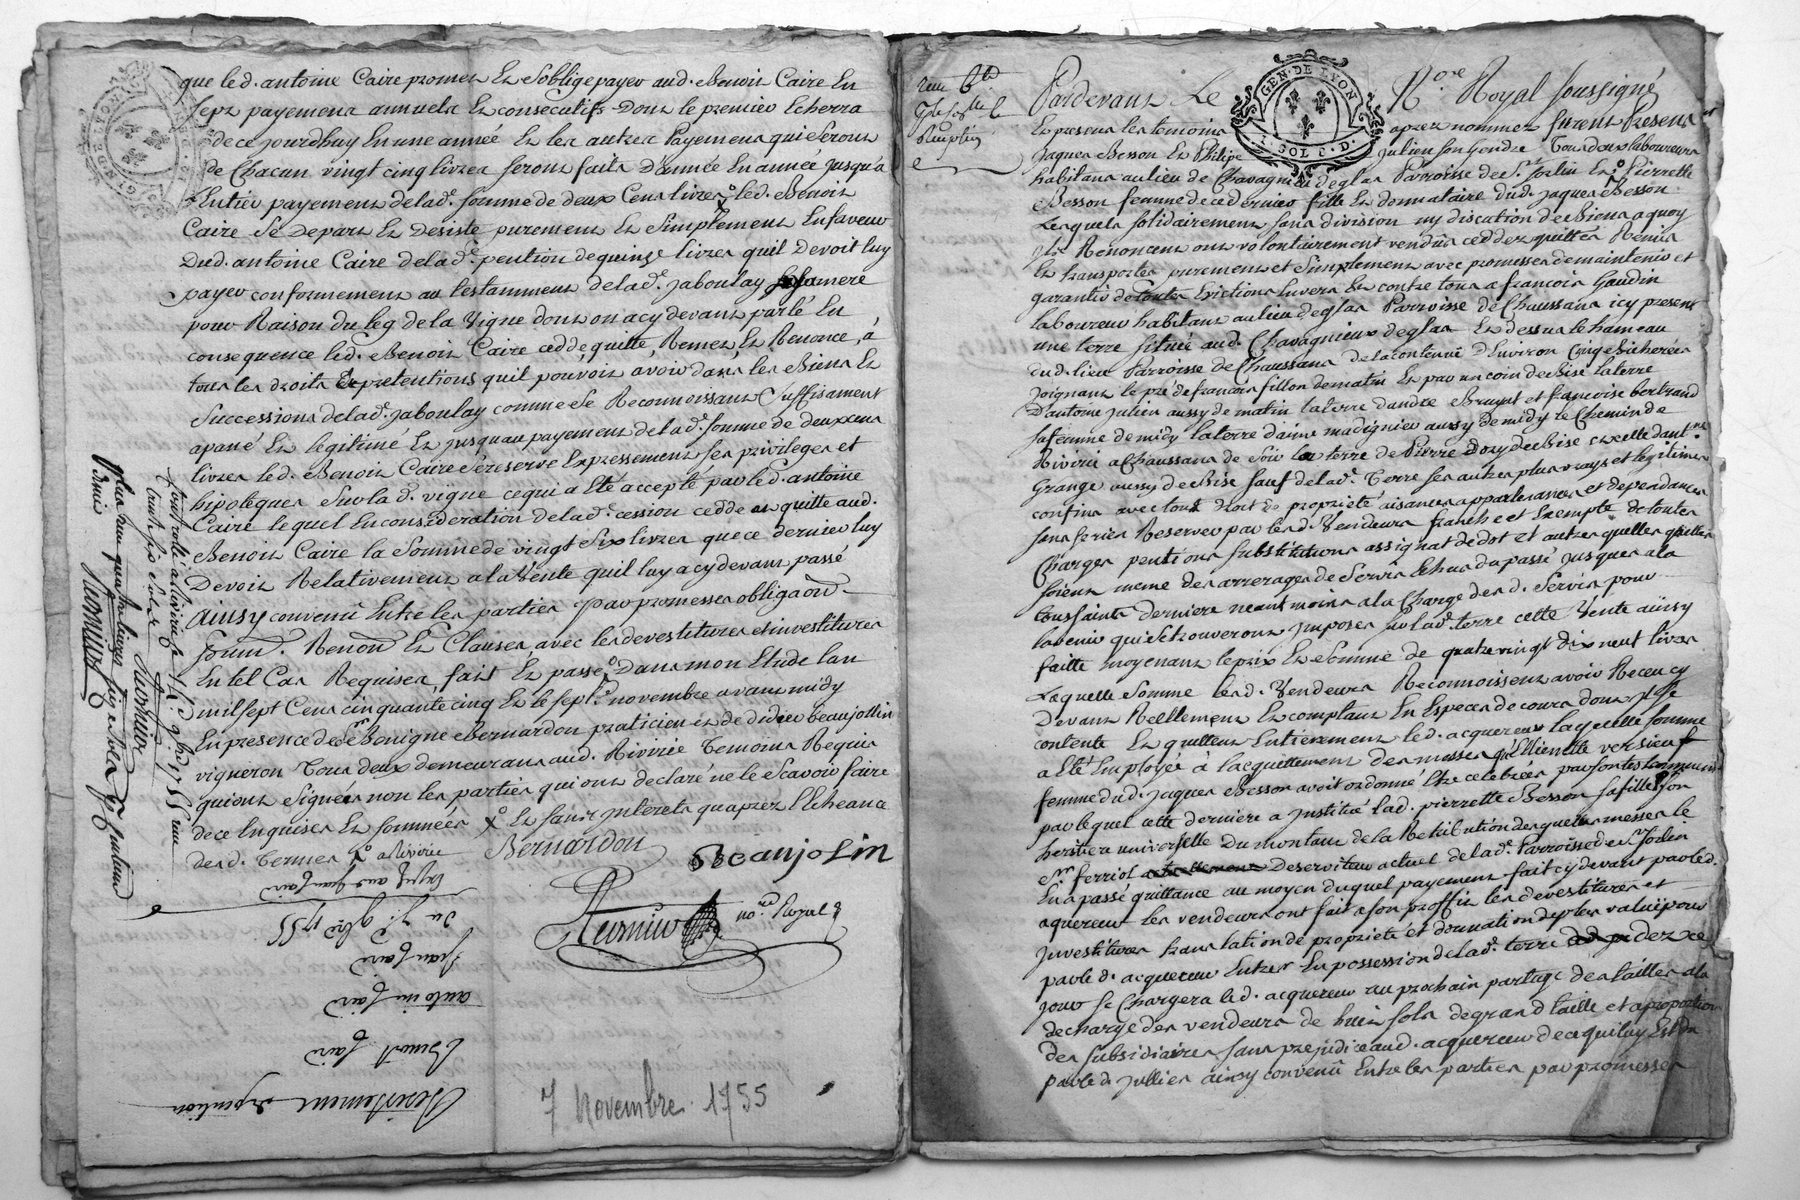 que led. antoine Caire promet Et Soblige payer aud. Benoit Caire En
sept payements annuels Et consecutifs Dont le premier Echerra
de ce jourdhuy En une année Et les autres Payements qui Seront
de Chacun vingt cinq livres seront faits D'année En année Jusqu'a
Entier payement de lad. somme de deux Cens livres led. Benoit
Caire Se Depart Et Desiste purement Et Simplement En faveur
Dud. antoine Caire de lad. pention de quinze livres quil Devoit luy
payer conformement au testamment de lad. jaboulay sa mere
pour Raison du leg de la Vigne dont on a cy devant parlé En
consequence led. Benoit Caire cedde, quitte, Remet, Et Renonce, a
tous les droits Et pretentions quil pouvoit avoir dans les Biens Et
Successions de lad. jaboulay comme Se Reconnoissant Suffisament
apané Et legitimé Et jusquau payement de lad. somme de deux cens
livres led. Benoit Caire Se reserve Expressement ses privileges et
hipoteques Sur la d. vigne ce qui a Eté accepté par led. antoine
Caire lequel En consideration de lad. cession cedde et quitte aud.
Benoit Caire la Somme de vingt Six livres que ce dernier luy
Devoit Relativement a la Vente quil luy a cy devant passé
Ainsy convenu Entre les parties par promesses obligaõn
soum. Renõn Et Clauses avec les devestitures et investitures
En tel Cas Requises, fait Et passé Dans mon Etude lan
mil sept Cens cinquante cinq Et le sept novembre avant midy
En presence de Sr Benigne Bernardon praticien et de didier beaujollin
vigneron Tous deux demeurans aud. Rivirie Temoins Requis
qui ont Signés non les parties qui ont declaré ne le Scavoir faire
de ce Enquises Et sommées x Et sans interets quaprez l'Echeance
des d. Termes x a Rivirie
Bernardon Beaujolin
no.re Royal
7 Novembre 1755
du 7e 9bre 1755
antoine
Benoit
Desistement de pention
GEN. DE LYON
SOL
Pardevant Le No.re Royal soussigné
Et presens les temoins aprez nommez furent Presens
Jaques Besson Et Philipe Julien son gendre Tous deux laboureurs
habitans au lieu de Chavagnieu deglas Parroisse de St. Joslin Et Pierrette
Besson femme de ce dernier fille Et donnataire dud. jaques Besson
Lesquels solidairement sans division ny discution de Biens a quoy
ils Renoncent ont volontairement vendûs ceddez quittés Remis
Et transportés purement et Simplement avec promesses de maintenir et
garantir de toutes Evictions Envers Et contre tous a francois Gaudin
laboureur habitant au lieu deglas Parroisse de Chaussans icy present
une terre située aud. Chavagnieux deglas Et dessus le hameau
dud. lieu Parroisse de Chaussans de la contenüe d'Environ Cinq Bicherées
Joignant le pré de francois fillon de matin Et par un coin de Bise la terre
D'antoine julien aussy de matin la terre d'andré Bruyat et francoise bertrand
sa femme de midy la terre d'aimé madignier aussy de midy le Chemin de
Riviris a Chaussans de Soir la terre de Pierre Dory de Bise et celle d'ant.ne
Grange aussy de Bise sauf de lad. Terre ses autres plus vrays et legitimes
confins avec tous droits de proprieté aisances appartenances et dependances
sans se rien Reserver par les d. Vendeurs franche et Exempte de toutes
Charges pentions substitutions assignat de dot et autres quelles quelles
soient meme des arrerages de Servis Echus du passé jusques a la
toussaints derniere neantmoins a la Charge des d. Servis pour
lavenir qui Se trouveront imposés sur lad. terre cette Vente aussy
faitte moyenant le prix Et Somme de quatre vingt dix neuf livres
Laquelle Somme les d. Vendeurs Reconnoissent avoir Receu cy
Devant Reellement Et comptant En Especes de cours dont ils se
contente Et quittent Entierement led. acquereur laquelle somme
a Eté Employée à l'acquittement des messes qu'Ettiennette versieux
femme dud. Jaques Besson avoit ordonné Etre celebrées par son testamment
par lequel cette derniere a Institué lad. pierrette Besson sa fille son
heritiere universelle Du montant de la Retribution desquelles messes le
Sr ferriol Desserviteur actuel de lad. Parroisse de St Joslin
En a passé quittance au moyen duquel payement fait cy devant par led.
aquereur les vendeurs ont fait a son proffit les devestitures et
Investitures translation de proprieté et donnation de plus valüe pour
par led. acquereur Entrer En possession de lad. terre dez ce
jour Se Chargera led. acquereur au prochain partage des tailles a la
decharge des vendeurs de huit sols de grand taille et a proportion
des subsidiaires sans prejudice aud. acquereur de ce qui luy Est dû
par led. Jullien ainsy convenû Entre les parties par promesses